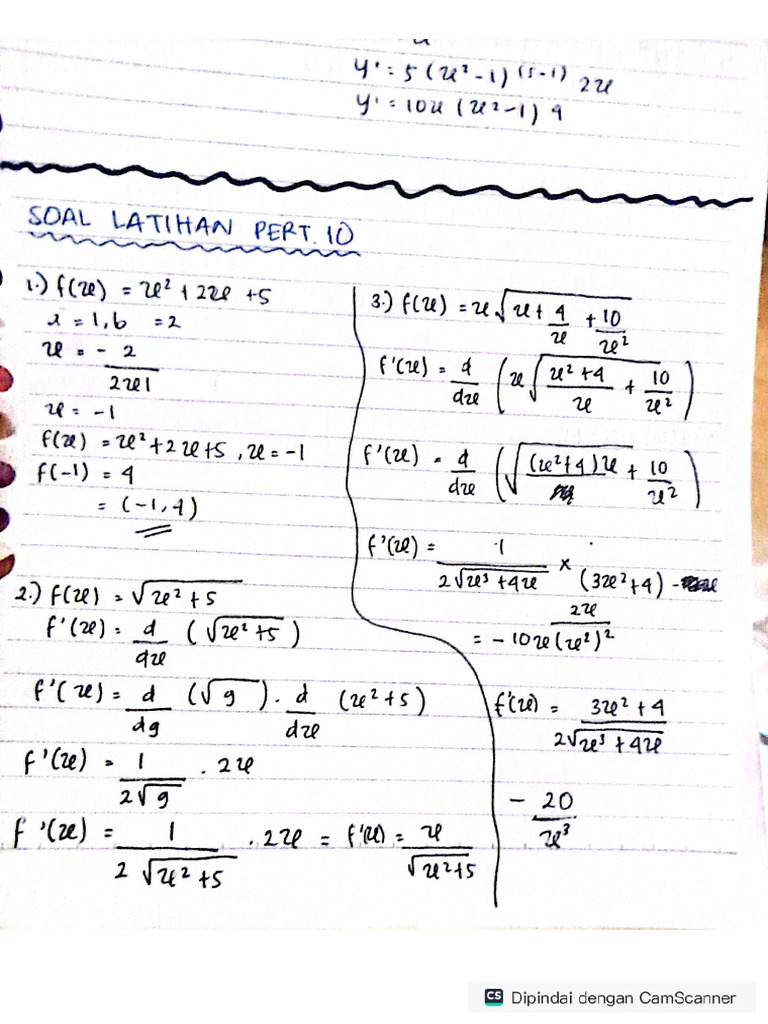 y' = 5 (x² - 1) (5-1) 2x
y' = 10x (x² - 1) 4
SOAL LATIHAN PERT. 10
1.) f(x) = x² + 2x + 5
a = 1, b = 2
x = - 2
2x1
x = -1
f(x) = x² + 2x + 5, x = -1
f(-1) = 4
= (-1, 4)
2.) f(x) = √x² + 5
f'(x) = d/dx (√x² + 5)
f'(x) = d/dg (√g) . d/dx (x² + 5)
f'(x) = 1/2√g . 2x
f'(x) = 1/2√x² + 5 . 2x = f'(x) = x/√x² + 5
3.) f(x) = x √x + 4/x + 10/x²
f'(x) = d/dx (x √x² + 4/x + 10/x²)
f'(x) = d/dx (√(x² + 4)x + 10/x²)
f'(x) = 1/2√x³ + 4x × (3x² + 4) -
2x
= - 10x (x²)²
f'(x) = 3x² + 4/2√x³ + 4x
- 20/x³
CS Dipindai dengan CamScanner